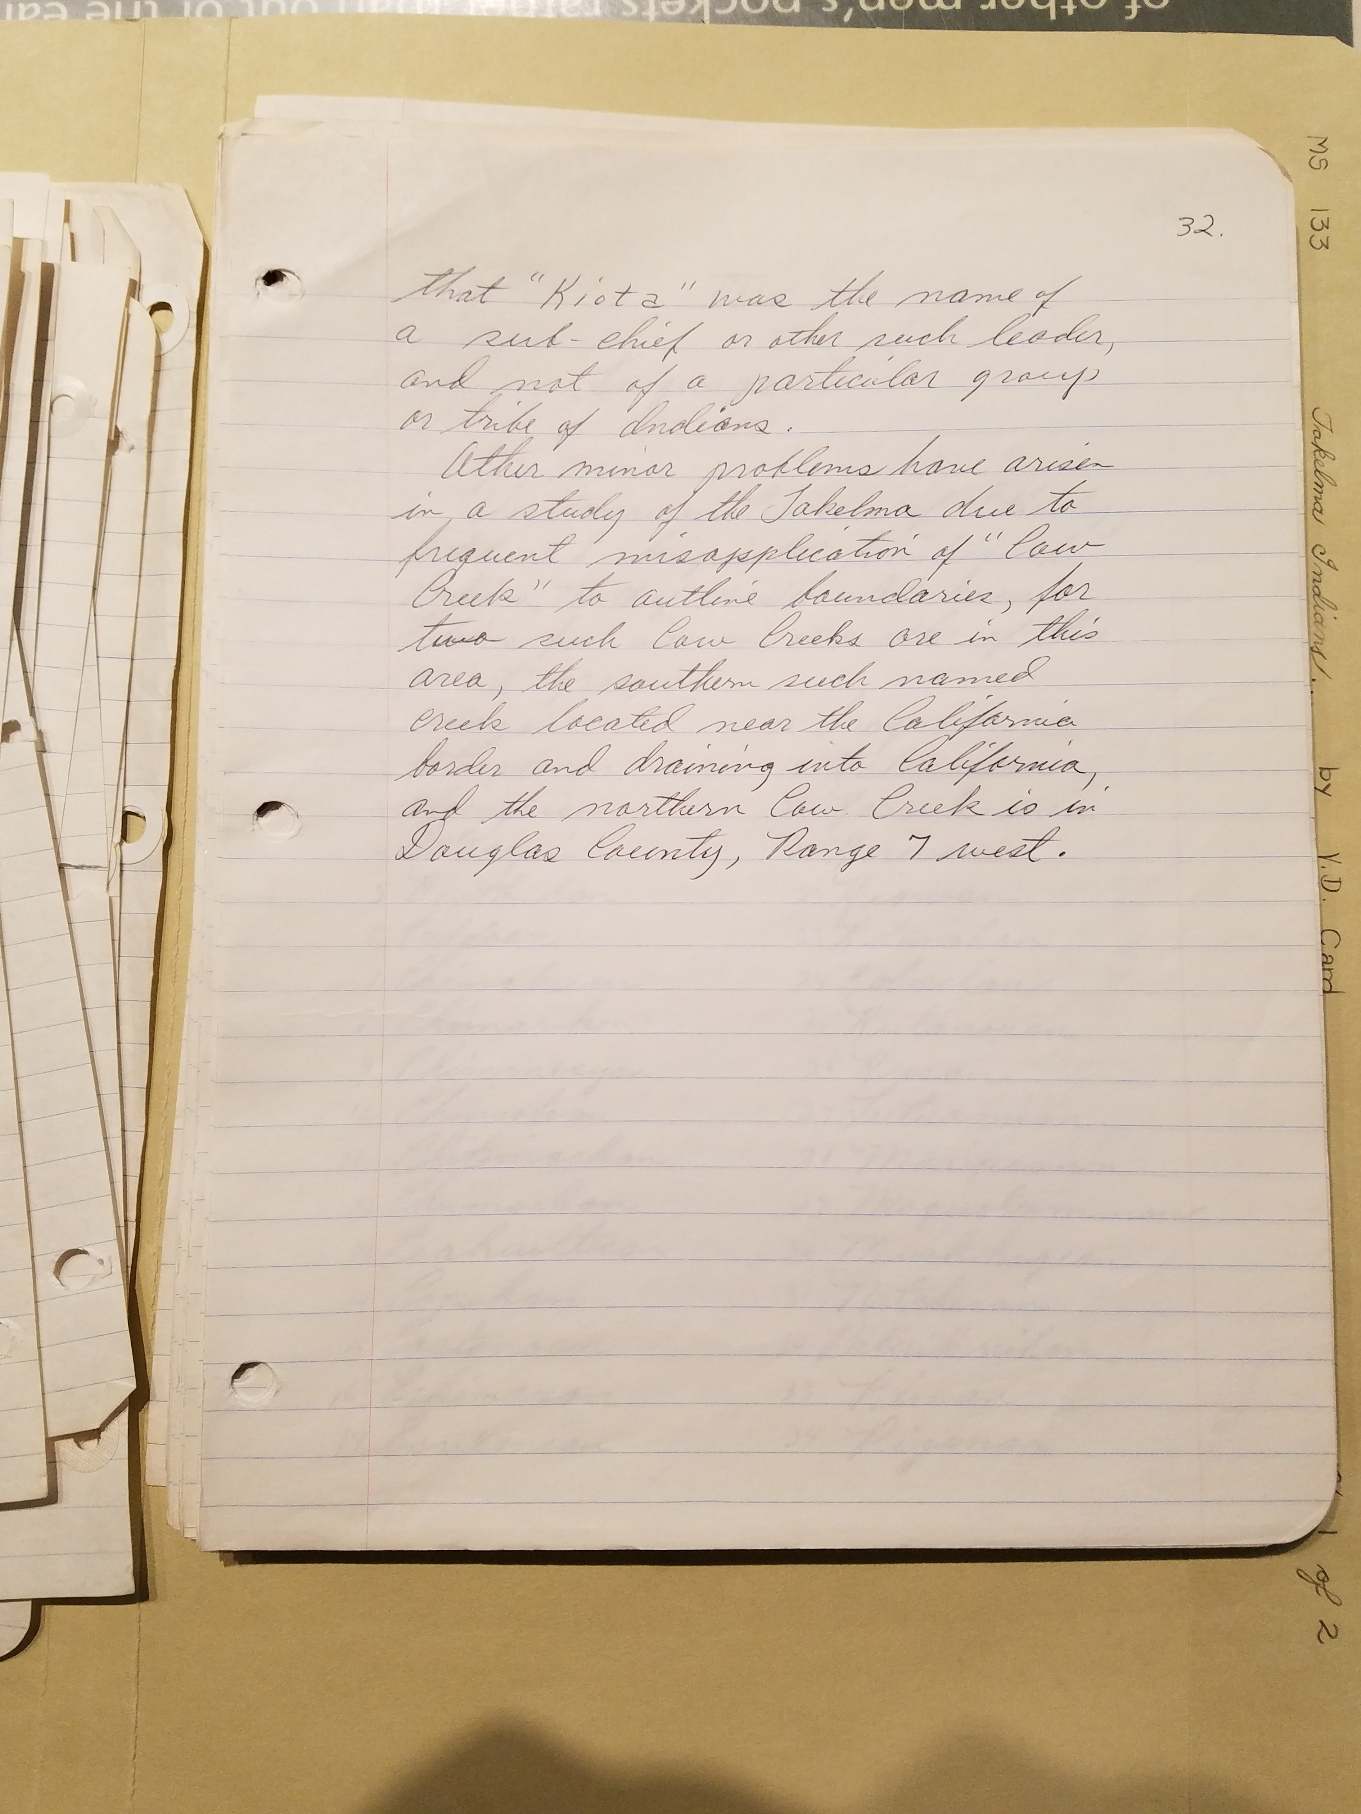 of other men's pockets rather than out of the ear
32.
that "Kiota" was the name of
a sub-chief or other such leader,
and not of a particular group
or tribe of Indians.
Other minor problems have arisen
in a study of the Takelma due to
frequent misapplication of "Cow
Creek" to outline boundaries, for
two such Cow Creeks are in this
area, the southern such named
creek located near the California
border and draining into California,
and the northern Cow Creek is in
Douglas County, Range 7 west.
MS 133 Takelma Indians/... by Y.D. Card 1 of 2